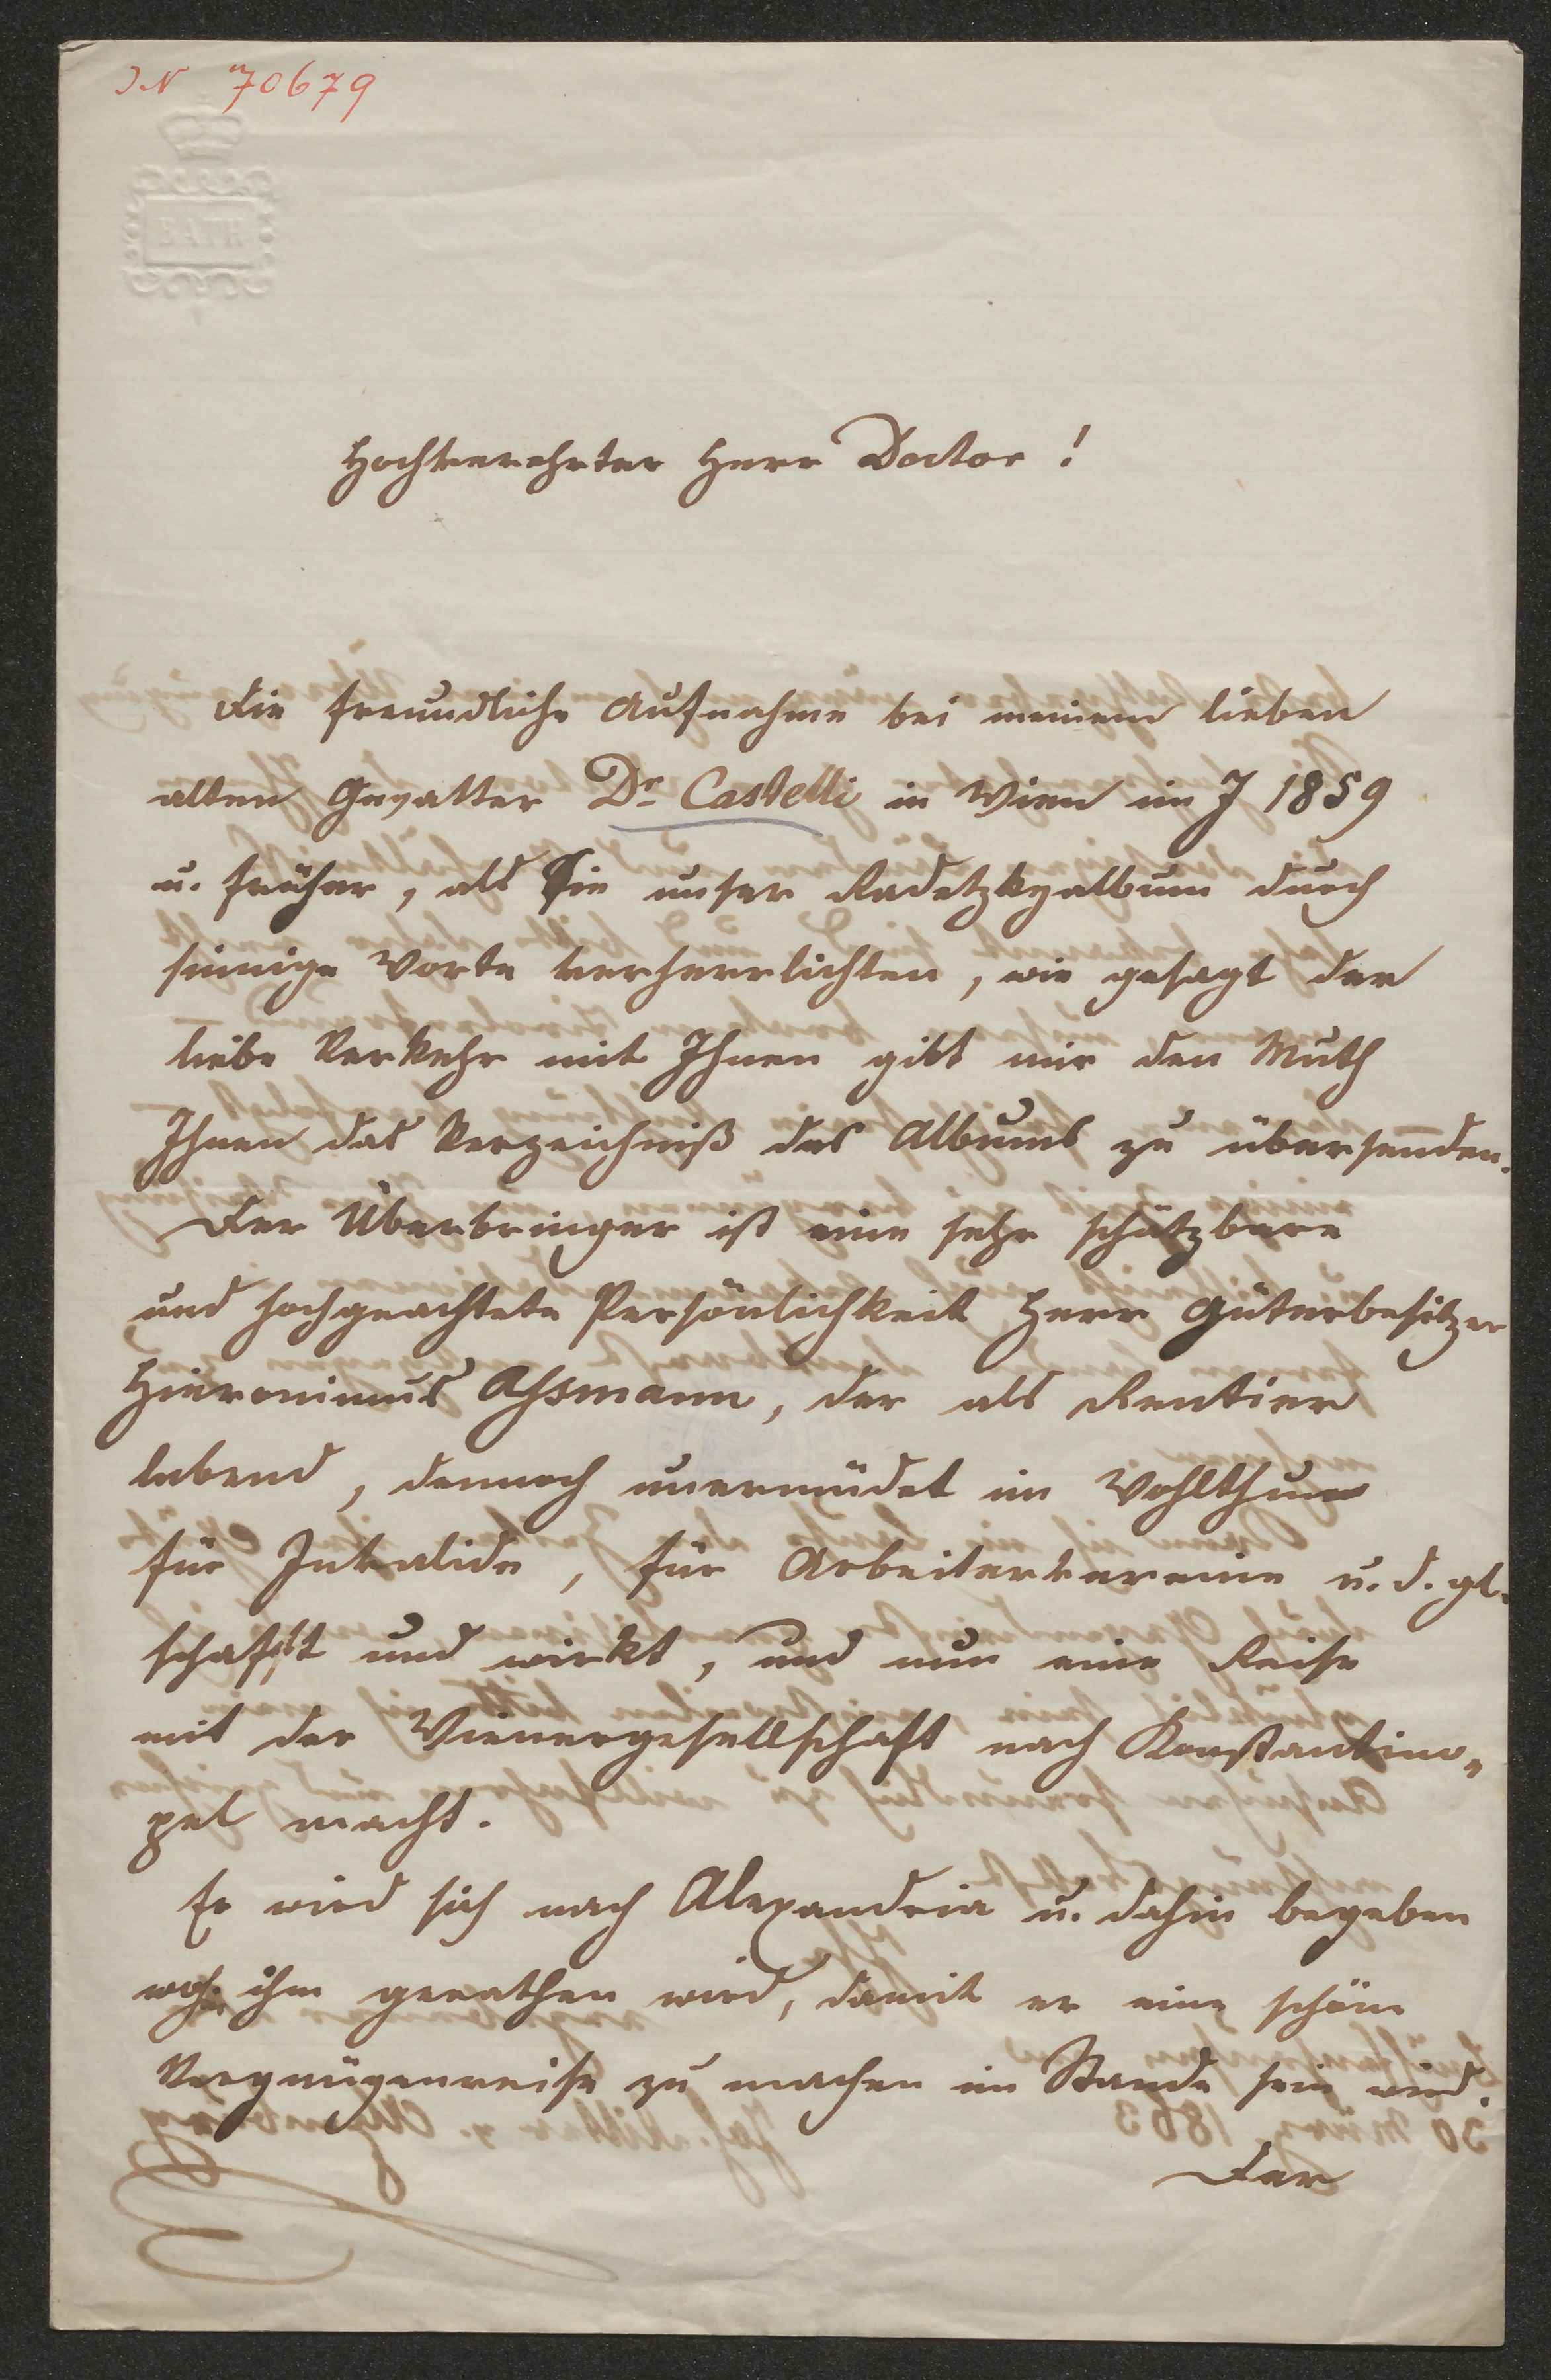 IN 70679
BATH
Hochverehrter Herr Doctor!
Die freundliche Aufnahme bei meinem lieben
alten Gevatter Dr Castelli in Wien im J 1859
u. früher, als Sie unser Radetzkyalbum durch
sinnige Worte verherrlichten, wie gesagt der
liebe Verkehr mit Ihnen gibt mir den Muth
Ihnen das Verzeichniß des Albums zu übersenden.
Der Überbringer ist eine sehr schätzbare
und hochgeachtete Persönlichkeit Herr Güterbesitzer
Hieronimus Assmann, der als Rentier
lebend, dennoch unermüdet im Wohlthun
für Invalide, für Arbeitervereine u. d. gl.
schafft und wirkt, und nun eine Reise
mit der Wienergesellschaft nach Konstantino-
pel macht.
Er wird sich nach Alexandria u. dahin begeben
wohin ihm gerathen wird, damit er eine schöne
Vergnügenreise zu machen im Stande sein wird.
Der